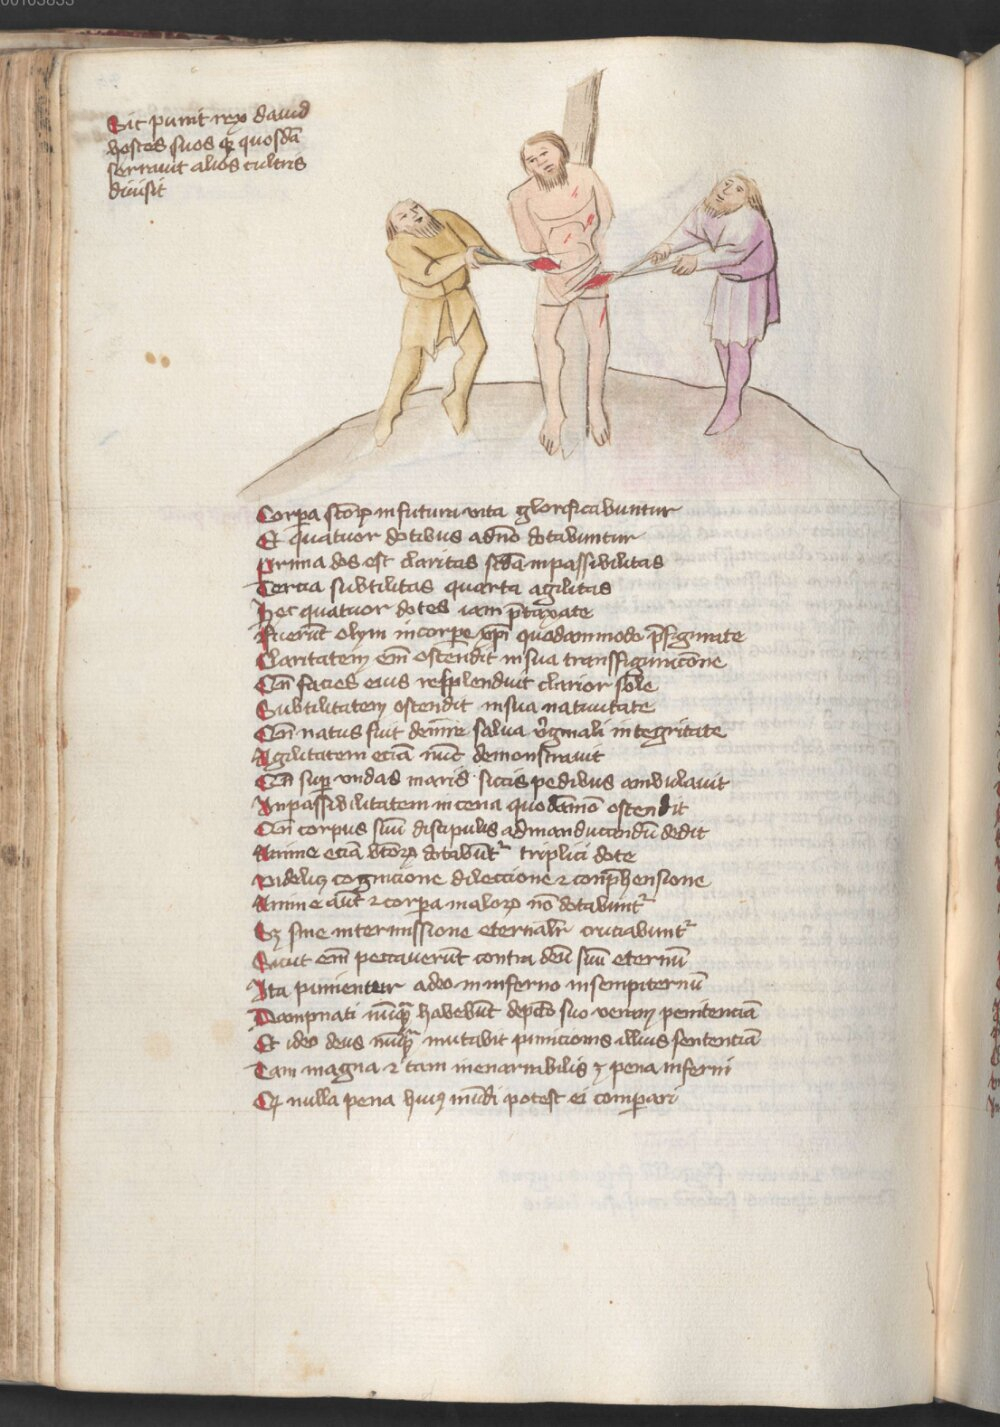 00105855
Sic punit rex dauid
hostes suos q̄ quosdā
serrauit alios cultris
diuisit
Corpa sctōꝝ in futura vita glorificabuntur
Et quatuor dotibus a dn̄o dotabuntur
Prima dos est claritas scdā inpassibilitas
Tercia subtilitas quarta agilitas
Hec quatuor dotes iam p̄taxate
Fuerūt olym in corpe xp̄i quodammodo p̄figurate
Claritatem em̄ ostendit in sua transfiguracōne
Cū facies eius resplenduit clarior sole
Subtilitatem ostendit in sua natiuitate
Cū natus fuit de mr̄e salua v̓ginali integritate
Agilitatem eciā tūc demonstrauit
Cū sup vndas maris siccis pedibus ambulauit
Inpassibilitatem in cena quodāmō ostendit
Cū corpus suū discipulis ad manducandū dedit
Anime eciā btōꝝ dotabūt᷑ triplici dote
Videlicꝫ cognicione dileccione ⁊ conp̄hensione
Anime aūt ⁊ corpa maloꝝ nō dotabunt᷑
Sꝫ sine intermissione eternalr̄ cruciabunt᷑
Sicut em̄ peccauerūt contra deū suū eternū
Ita punientur a deo in inferno in sempiternū
Dampnati nūqꝫ habebūt de pctō suo veram penitenciā
Et ideo deus nūqꝫ mutabit punicionis illius sentenciā
Tam magna ⁊ tam inenarrabilis ē pena inferni
Qꝫ nulla pena huiꝰ mūdi potest ei comparari